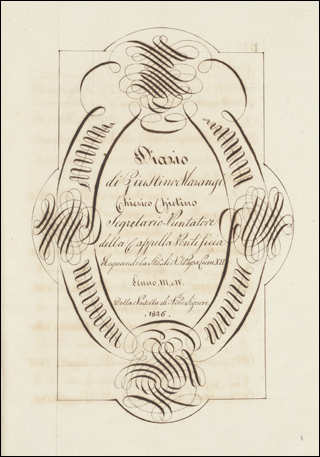 Diario
di Giustino Marangi
Chierico Chietino
Segretario Puntatore
della Cappella Pontificia
Regnando la Stà di N. S. Papa Leone XII
Anno III, e IV.
Della Nascita di Nro Signore
1826.